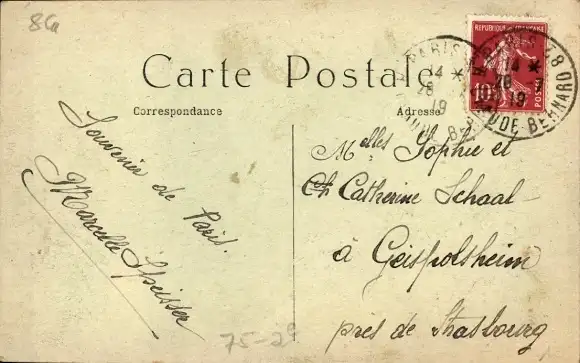 86a
Carte Postale
Correspondance
Adresse
Souvenir de Paris.
Marcelle Speisser
Melles Sophie et
Catherine Schaal
à Geispolsheim
près de Strasbourg
75-29
REPUBLIQUE FRANÇAISE
10
POSTES
PARIS
14
28
19
PARIS 48
14
28
19
BERNARD